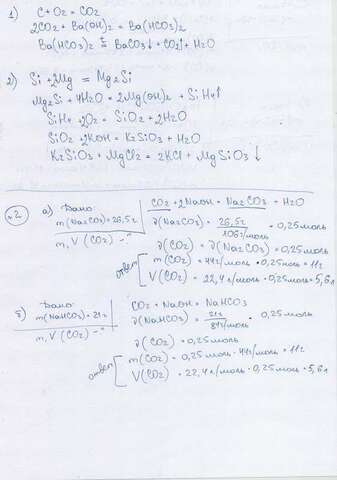 1) C + O2 = CO2
2CO2 + Ba(OH)2 = Ba(HCO3)2
Ba(HCO3)2 = BaCO3↓ + CO2↑ + H2O
2) Si + 2Mg = Mg2Si
Mg2Si + 4H2O = 2Mg(OH)2 + SiH4↑
SiH4 + 2O2 = SiO2 + 2H2O
SiO2 + 2KOH = K2SiO3 + H2O
K2SiO3 + MgCl2 = 2KCl + MgSiO3↓
№2 а) Дано:
m(Na2CO3) = 26,5г
m, V (CO2) - ?
CO2 + 2NaOH = Na2CO3 + H2O
ν(Na2CO3) = 26,5г / 106г/моль = 0,25моль
ν(CO2) = ν(Na2CO3) = 0,25моль
ответ
m(CO2) = 44г/моль · 0,25моль = 11г
V(CO2) = 22,4л/моль · 0,25моль = 5,6л
б) Дано:
m(NaHCO3) = 21г
m, V (CO2) - ?
CO2 + NaOH = NaHCO3
ν(NaHCO3) = 21г / 84г/моль = 0,25моль
ν(CO2) = 0,25моль
ответ
m(CO2) = 0,25моль · 44г/моль = 11г
V(CO2) = 22,4л/моль · 0,25моль = 5,6л